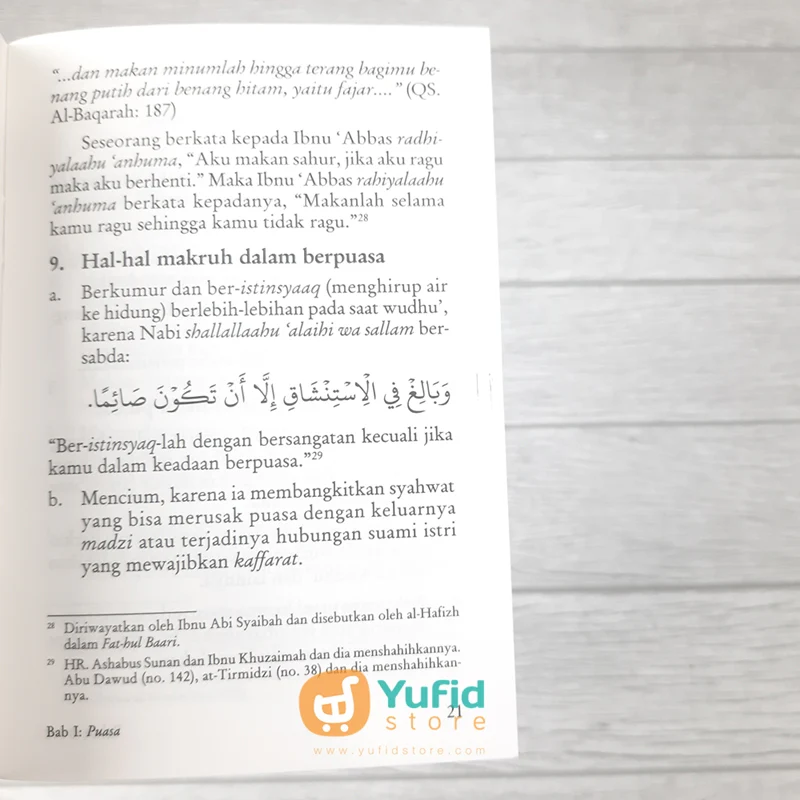 “...dan makan minumlah hingga terang bagimu be-
nang putih dari benang hitam, yaitu fajar....” (QS.
Al-Baqarah: 187)
Seseorang berkata kepada Ibnu ‘Abbas radhi-
yalaahu ‘anhuma, “Aku makan sahur, jika aku ragu
maka aku berhenti.” Maka Ibnu ‘Abbas rahiyalaahu
‘anhuma berkata kepadanya, “Makanlah selama
kamu ragu sehingga kamu tidak ragu.”28
9. Hal-hal makruh dalam berpuasa
a. Berkumur dan ber-istinsyaaq (menghirup air
ke hidung) berlebih-lebihan pada saat wudhu’,
karena Nabi shallallaahu ‘alaihi wa sallam ber-
sabda:
وَبَالِغْ فِي الْاِسْتِنْشَاقِ إِلَّا أَنْ تَكُوْنَ صَائِمًا.
“Ber-istinsyaq-lah dengan bersangatan kecuali jika
kamu dalam keadaan berpuasa.”29
b. Mencium, karena ia membangkitkan syahwat
yang bisa merusak puasa dengan keluarnya
madzi atau terjadinya hubungan suami istri
yang mewajibkan kaffarat.
28 Diriwayatkan oleh Ibnu Abi Syaibah dan disebutkan oleh al-Hafizh
dalam Fat-hul Baari.
29 HR. Ashabus Sunan dan Ibnu Khuzaimah dan dia menshahihkannya.
Abu Dawud (no. 142), at-Tirmidzi (no. 38) dan dia menshahihkan-
nya.
21
Bab I: Puasa
Yufid
store
www.yufidstore.com